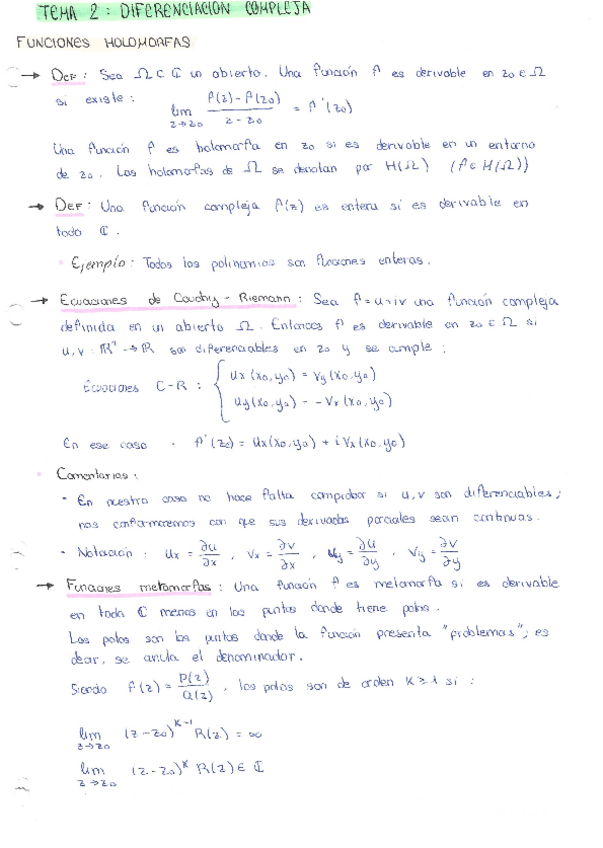 TEMA 2: DIFERENCIACION COMPLEJA
FUNCIONES HOLOMORFAS
→ DEF: Sea Ω ⊂ ℂ un abierto. Una función f es derivable en z₀ ∈ Ω
si existe: lim_{z→z₀} (f(z) - f(z₀))/(z - z₀) = f'(z₀)
Una función f es holomorfa en z₀ si es derivable en un entorno
de z₀. Las holomorfas de Ω se denotan por H(Ω) (f ∈ H(Ω))
→ DEF: Una función compleja f(z) es entera si es derivable en
todo ℂ.
• Ejemplo: Todos los polinomios son funciones enteras.
→ Ecuaciones de Cauchy - Riemann: Sea f = u + iv una función compleja
definida en un abierto Ω. Entonces f es derivable en z₀ ∈ Ω si
u, v: ℝ² → ℝ son diferenciables en z₀ y se cumple:
Ecuaciones C-R: { ux(x₀,y₀) = vy(x₀,y₀)
uy(x₀,y₀) = - vx(x₀,y₀)
En ese caso · f'(z₀) = ux(x₀,y₀) + i vx(x₀,y₀)
• Comentarios:
- En nuestro caso no hace falta comprobar si u, v son diferenciables;
nos conformaremos con que sus derivadas parciales sean continuas.
- Notación: ux = ∂u/∂x, vx = ∂v/∂x, uy = ∂u/∂y, vy = ∂v/∂y
→ Funciones metamorfas: Una función f es metamorfa si es derivable
en todo ℂ menos en los puntos donde tiene polos.
Los polos son los puntos donde la función presenta "problemas"; es
decir, se anula el denominador.
Siendo f(z) = P(z)/Q(z), los polos son de orden K ≥ 1 si:
lim_{z→z₀} (z - z₀)^{K-1} R(z) = ∞
lim_{z→z₀} (z - z₀)^K R(z) ∈ ℂ